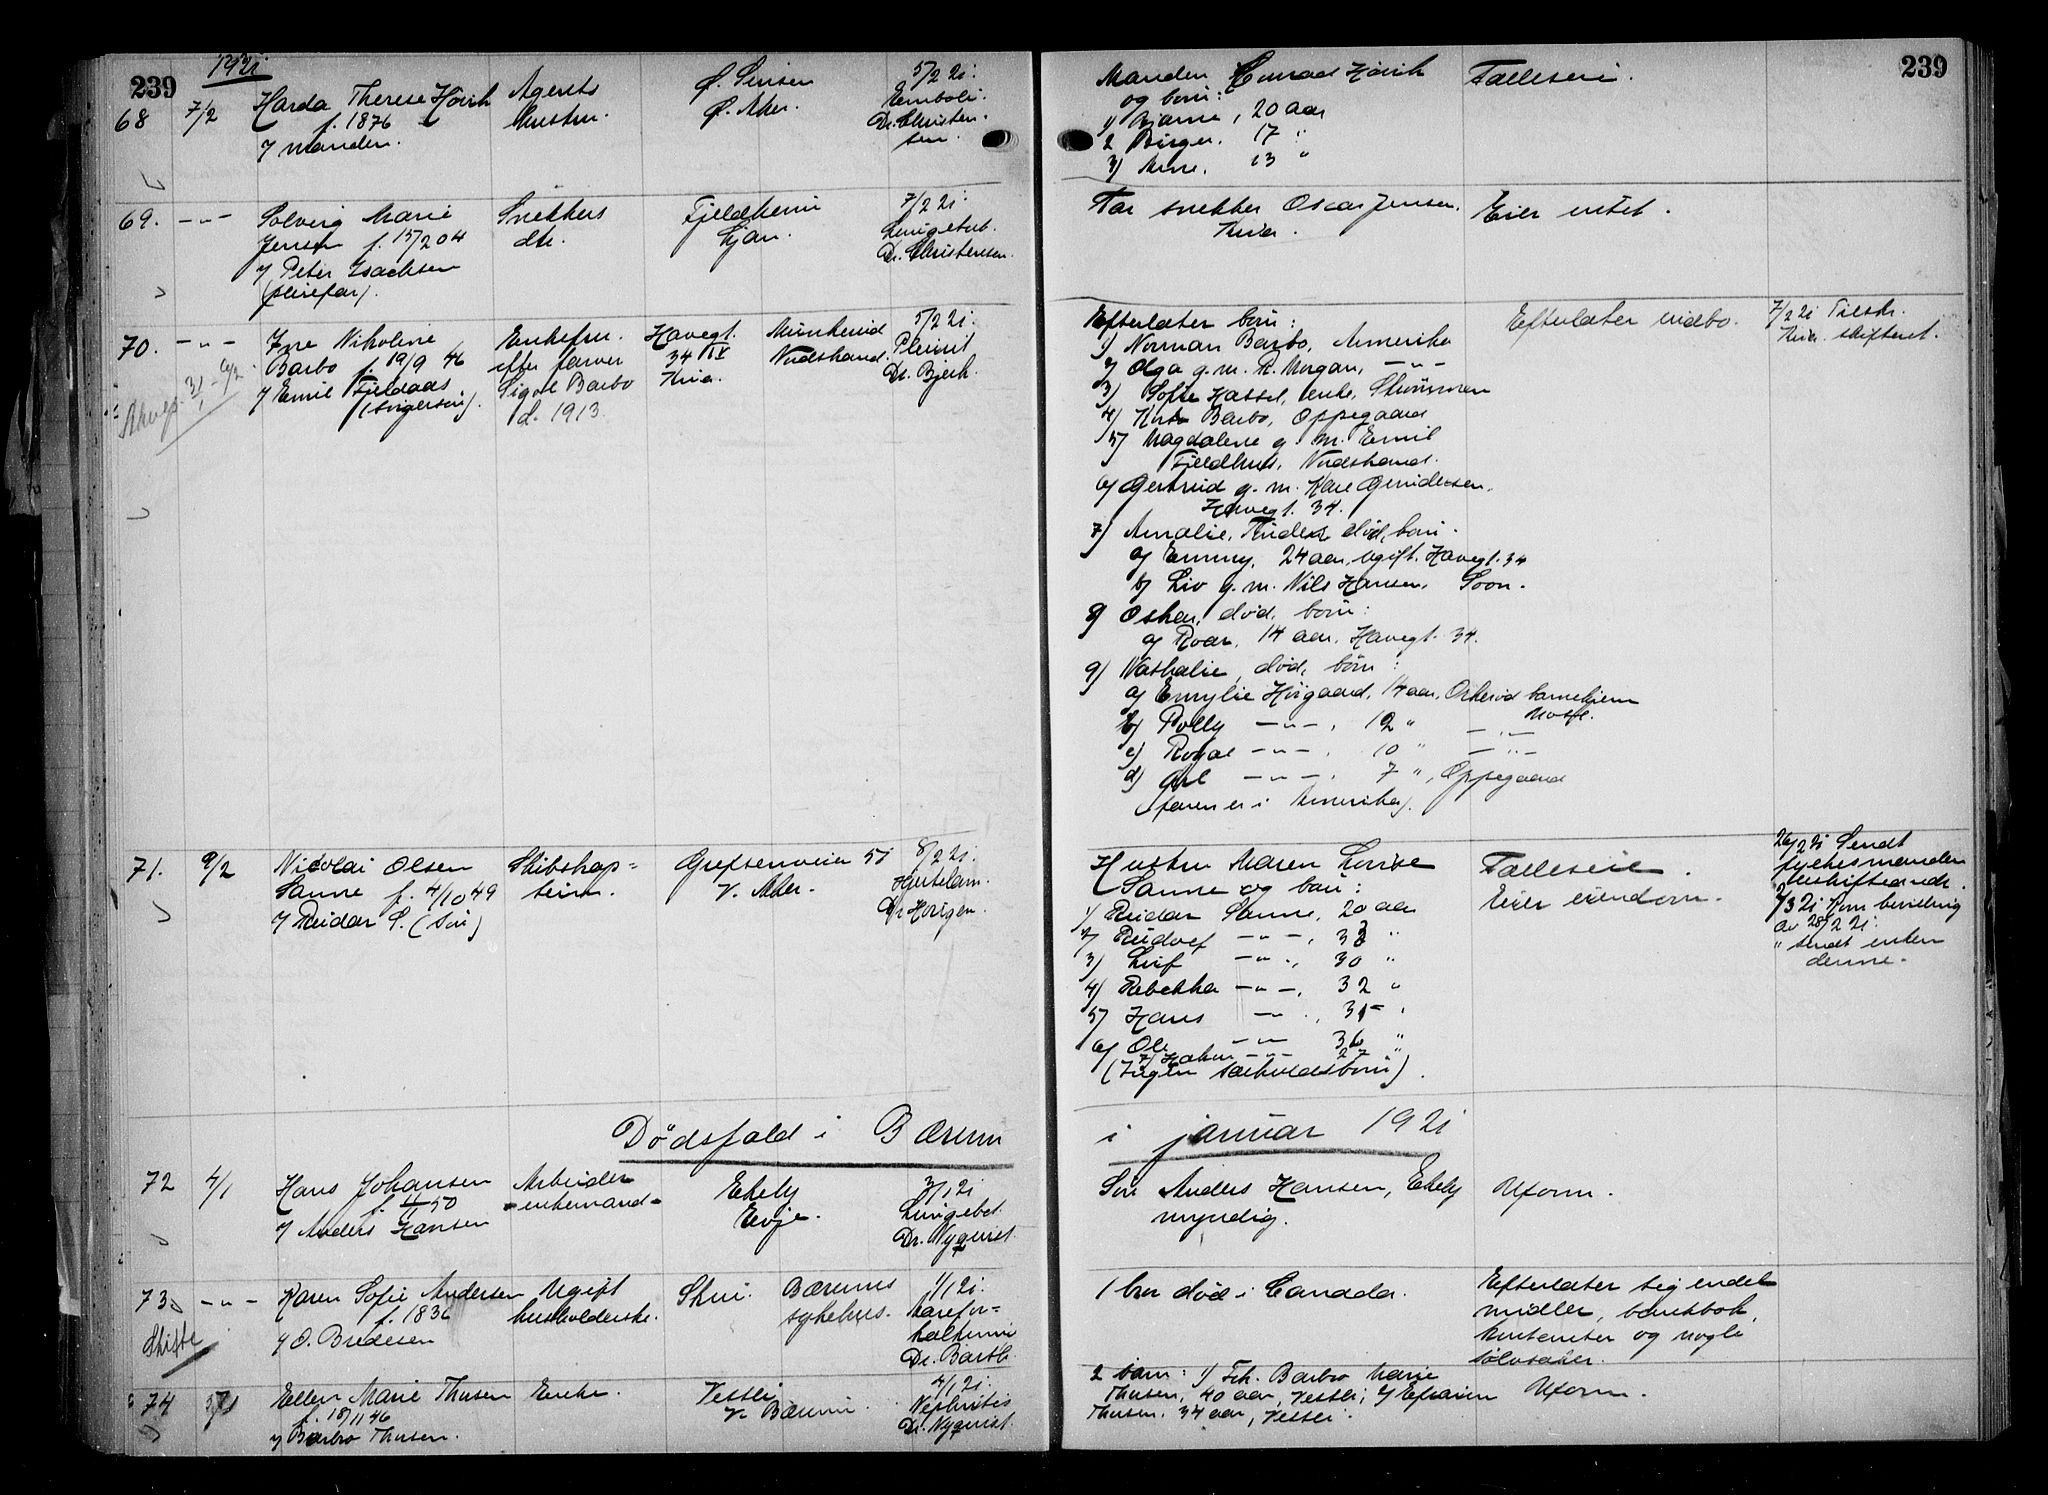 239
1921
68
7/2
Harda Therese Høvik
f. 1876
v/ manden.
Agents
hustru.
Ø. Sinsen
Ø. Aker.
5/2 21.
Emboli.
Dr. Christen-
sen.
69.
— " —
Solveig Marie
Jensen f. 15/2 04
v/ Peter Isachsen
(pleiefar).
Snekkers
dtr.
Fjeldheim
Ljan.
7/2 21.
Lungetub.
Dr. Christensen.
70.
— " —
Ine Nikoline
Barbo f. 19/9 46
v/ Emil
Enkefru.
efter farver
Sigv. Barbo
d. 1913.
Havegt.
34 IV
Kria.
Munkerud
Nordstrand.
5/2 21.
Pleurit
Dr. Bjerk.
71.
9/2
Nicolai Olsen
Sanne f. 4/10 49
v/ Reidar S. (søn)
Skibskap-
tein.
Grefsenveien 51
V. Aker.
8/2 21.
Hjertelam.
Dr. Horigen.
Dödsfald i Bærum
72
4/1
Hans Johansen
f. 50
v/ Anders Hansen
Arbeider
enkemand
Ekeby
Evje.
3/1 21
Lungebet.
Dr. Nyquist
73
— " —
Skifte
Karen Sofie Andersen
f. 1836
v/ O. Bredesen
Ugift
husholderske.
Skui.
Bærums
sykehus.
1/1 21.
Marefor-
kalkning
Dr. Barth.
74
5/1
Ellen Marie Thusen
f. 18/11 46
v/ Barbro Thusen.
Enke.
Vestli
V. Bærum.
4/1 21.
Nephritis
Dr. Nyquist.
239
Manden Conrad Høvik
og børn:
1) Bjarne, 20 aar
2 Birger, 17 "
3) Arne, 13 "
Fælleseie.
Far snekker Oscar Jensen.
Kria.
Eier intet.
Efterlater børn:
1) Norman Barbo, Amerika
2) Olga g. m. R. Morgan, — " —
3) Sofie Hassel, enke, Strömmen
4) Barbo, Oppegaard
5) Magdalene g. m. Emil
Fjeldhus, Nordstrand.
6) Gertrud g. m. Kåre Gundersen.
Havegt. 34.
7) Amalie, død, børn.
a) Emmy, 24 aar, ugift. Havegt. 34
b) Liv g. m. Nils Hansen, Soon.
8) Oskar, død, børn:
a) Roar, 14 aar, Havegt. 34.
9) Nathalie, død, børn:
a) Emylie Høigaard, 14 aar, Orkerød barnehjem
Moss.
b) Polly — " —, 12 " — " —
c) Roval — " —, 10 " — " —
d) — " —, 7 ", Oppegaard
(faren er i Amerika).
Efterlater indbo.
7/2 21 Tilskr.
Kria. skifteret.
Hustru Maren Lovise
Sanne og børn:
1) Reidar Sanne, 20 aar
2) Rudolf — " —, 33 "
3) Leif — " —, 30 "
4) Rebekka — " —, 32 "
5) Hans — " —, 35 "
6) Ole — " — 36 "
7) Håkon — " — 27 "
(Ingen særkuldsbørn).
Fælleseie.
Eier eiendom.
26/2 21 Sendt
fylkesmanden
uskifteandr.
7/3 21 Kom bevilling
av 28/2 21.
" sendt enken
denne.
i januar 1921
Søn Anders Hansen, Ekeby
myndig.
Uform.
1 bror död i Canada.
Efterlater sig endel
midler, bankbok,
kontanter og nogle
sølvsaker.
2 barn: 1) Frk. Barbro Marie
Thusen, 40 aar, Vestli; 2) Efraim
Thusen. 34 aar, Vestli.
Uform.